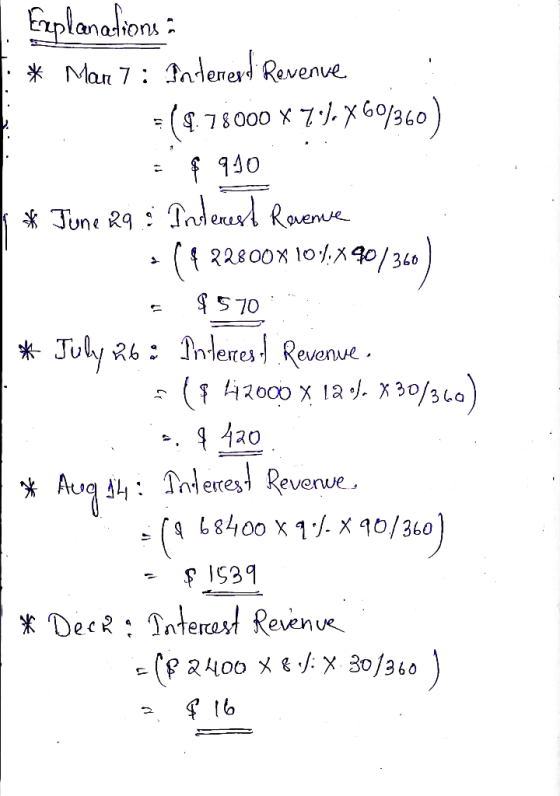 Explanations :
* Mar 7 : Interest Revenue
= ($ 78000 X 7 % X 60/360)
= $ 910
* June 29 : Interest Revenue
= ($ 22800 X 10 % X 90/360)
= $ 570
* July 26 : Interest Revenue.
= ($ 42000 X 12 % X 30/360)
= $ 420
* Aug 14 : Interest Revenue.
= ($ 68400 X 9 % X 90/360)
= $ 1539
* Dec 2 : Interest Revenue
= ($ 2400 X 8 % X 30/360)
= $ 16